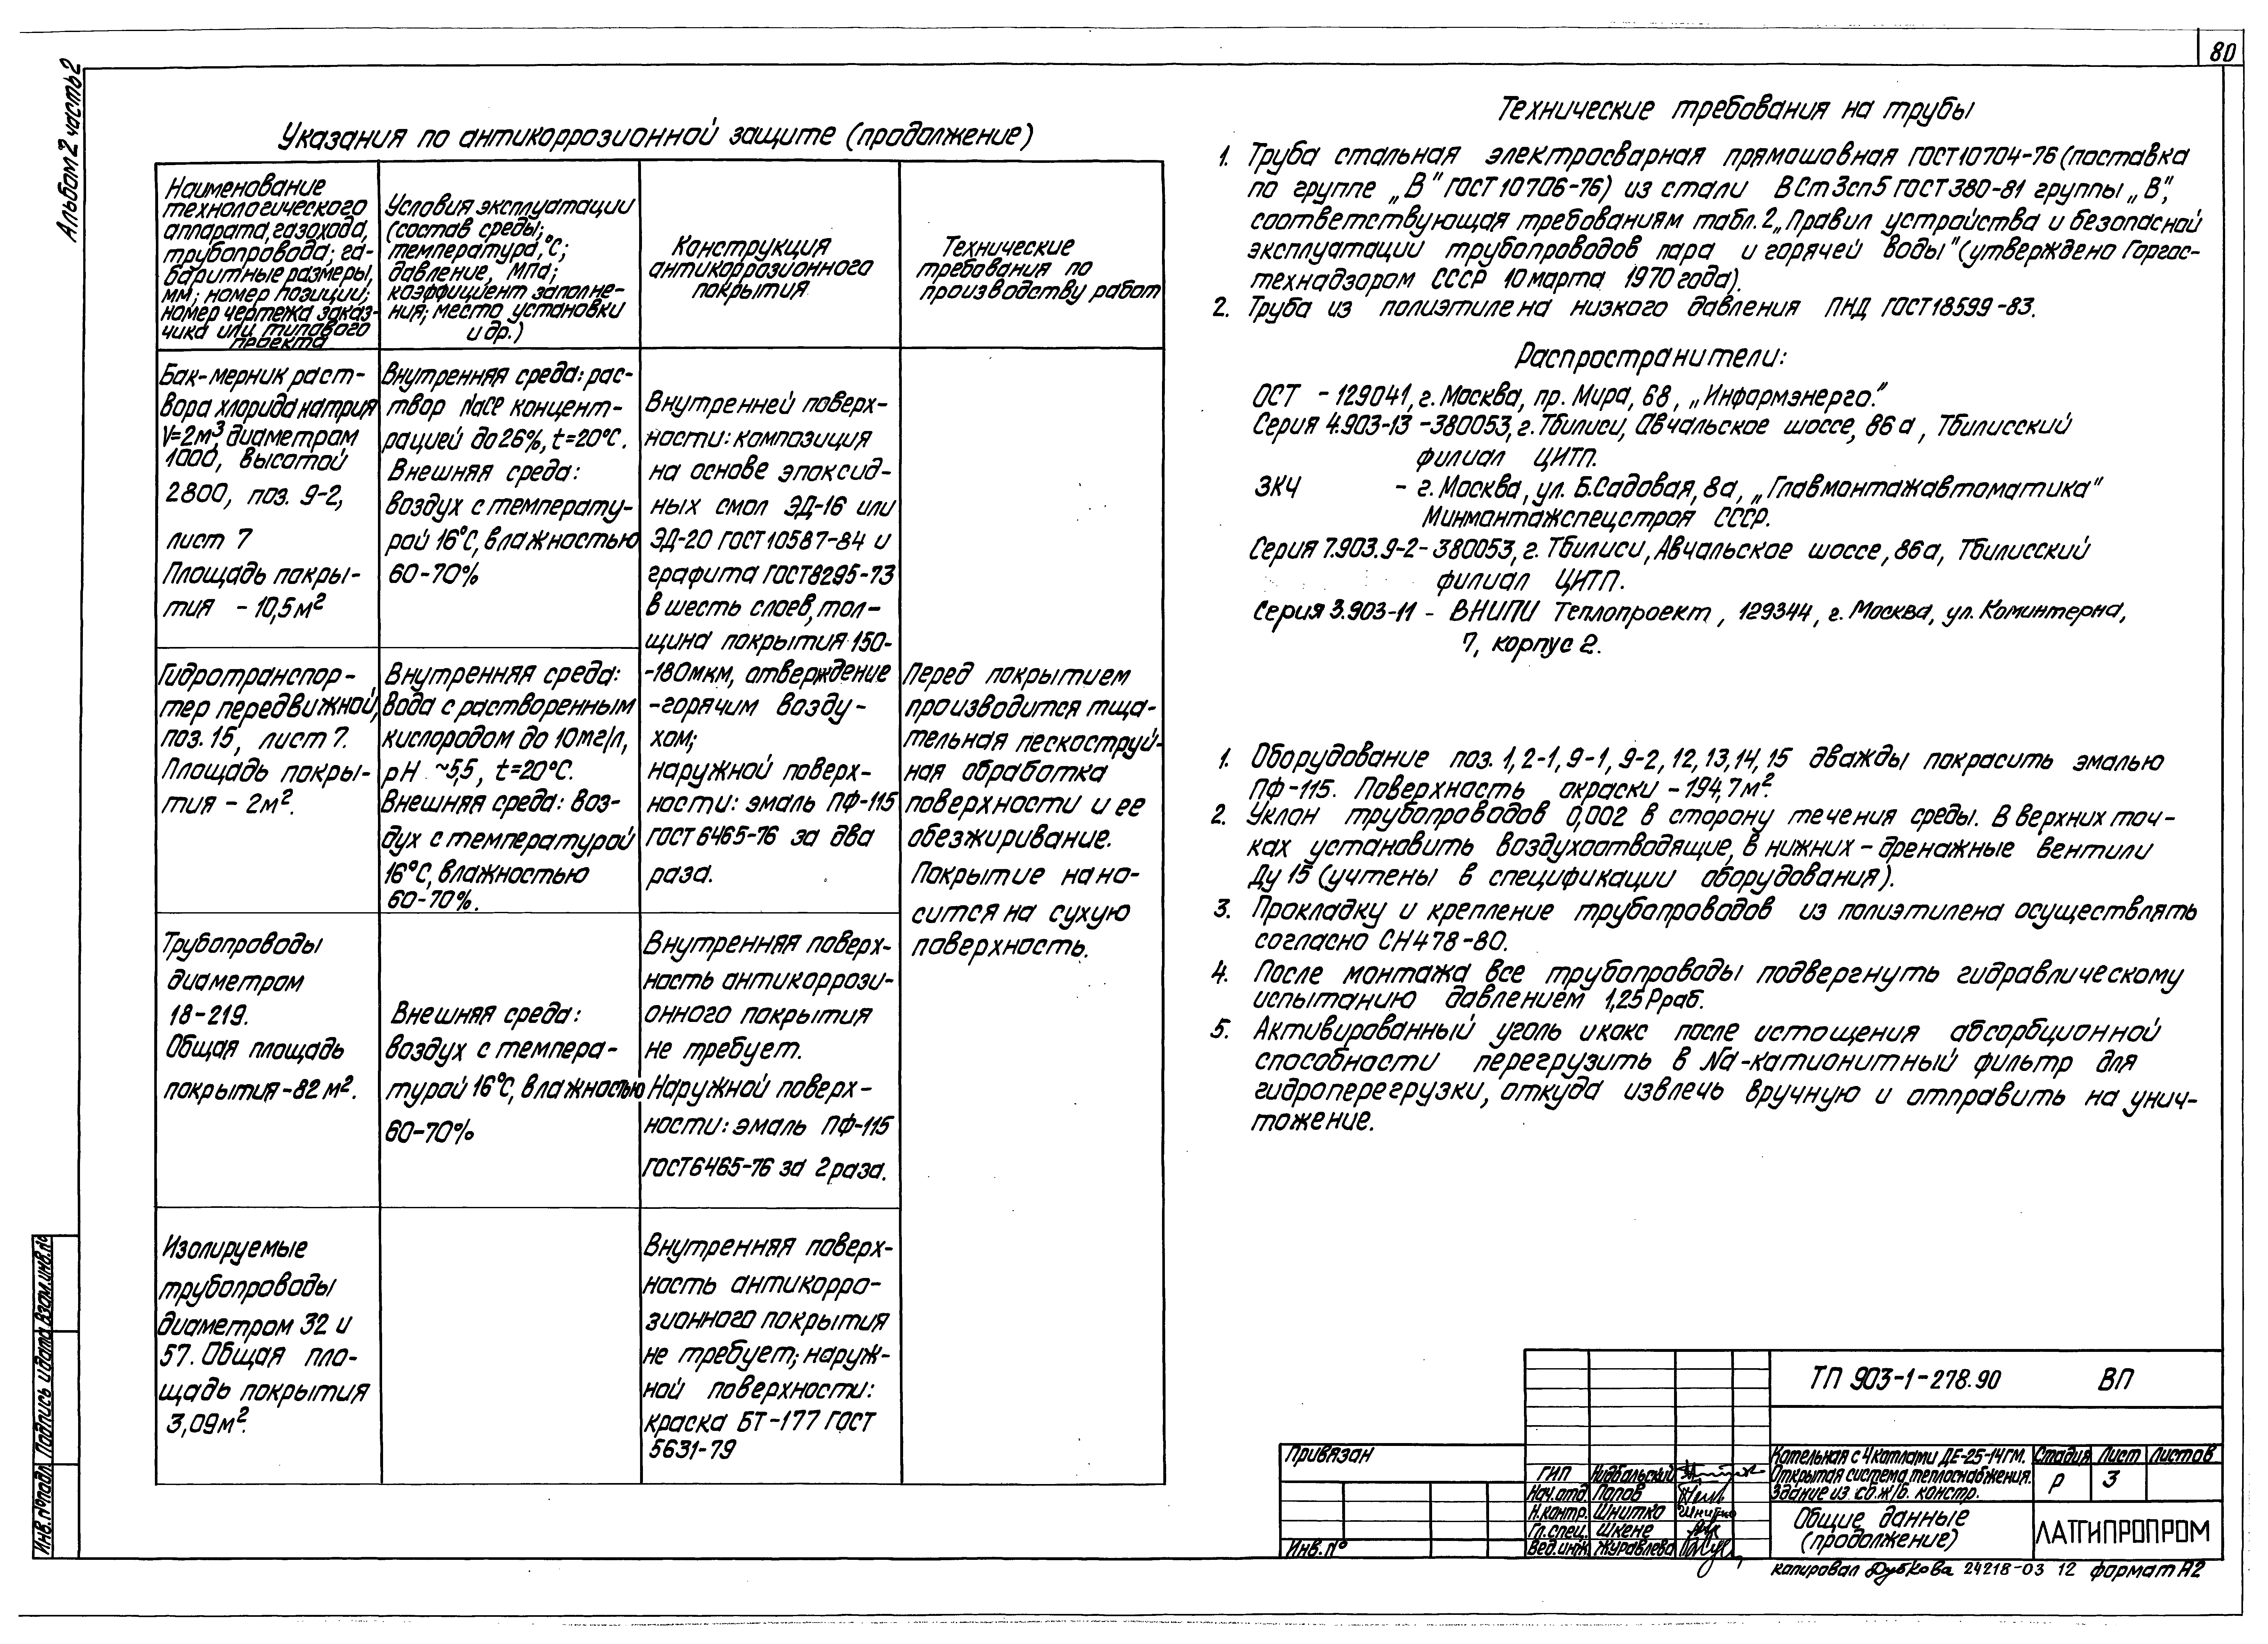 80
Альбом 2 часть 2
Указания по антикоррозионной защите (продолжение)
Наименование
технологического
аппарата, газохода,
трубопровода; га-
баритные размеры,
мм; номер позиции;
номер чертежа заказ-
чика или типового
проекта
Условия эксплуатации
(состав среды;
температура, °С;
давление, МПа;
коэффициент заполне-
ния; место установки
и др.)
Конструкция
антикоррозионного
покрытия
Технические
требования по
производству работ
Бак-мерник раст-
вора хлорида натрия
V=2м³, диаметром
1000, высотой
2800, поз. 9-2,
лист 7
Площадь покры-
тия - 10,5м²
Внутренняя среда: рас-
твор NaCl концент-
рацией до 26%, t=20°С.
Внешняя среда:
воздух с температу-
рой 16°С, влажностью
60-70%
Внутренней поверх-
ности: композиция
на основе эпоксид-
ных смол ЭД-16 или
ЭД-20 ГОСТ 10587-84 и
графита ГОСТ 8295-73
в шесть слоев, тол-
щина покрытия 150-
-180мкм, отверждение
-горячим возду-
хом;
наружной поверх-
ности: эмаль ПФ-115
ГОСТ 6465-76 за два
раза.
Гидротранспор-
тер передвижной,
поз. 15, лист 7.
Площадь покры-
тия - 2м².
Внутренняя среда:
вода с растворенным
кислородом до 10мг/л,
рН ~5,5, t=20°С.
Внешняя среда: воз-
дух с температурой
16°С, влажностью
60-70%.
Перед покрытием
производится тща-
тельная пескоструй-
ная обработка
поверхности и ее
обезжиривание.
Покрытие нано-
сится на сухую
поверхность.
Трубопроводы
диаметром
18-219.
Общая площадь
покрытия-82 м².
Внешняя среда:
воздух с темпера-
турой 16°С, влажностью
60-70%
Внутренняя поверх-
ность антикоррози-
онного покрытия
не требует.
Наружной поверх-
ности: эмаль ПФ-115
ГОСТ 6465-76 за 2 раза.
Изолируемые
трубопроводы
диаметром 32 и
57. Общая пло-
щадь покрытия
3,09м².
Внутренняя поверх-
ность антикорро-
зионного покрытия
не требует; наруж-
ной поверхности:
краска БТ-177 ГОСТ
5631-79
Технические требования на трубы
1. Труба стальная электросварная прямошовная ГОСТ 10704-76 (поставка
по группе „В" ГОСТ 10706-76) из стали ВСт3сп5 ГОСТ 380-81 группы „В",
соответствующая требованиям табл. 2 „Правил устройства и безопасной
эксплуатации трубопроводов пара и горячей воды" (утверждено Горгос-
технадзором СССР 10 марта 1970 года).
2. Труба из полиэтилена низкого давления ПНД ГОСТ 18599-83.
Распространители:
ОСТ - 129041, г. Москва, пр. Мира, 68, „Информэнерго."
Серия 4.903-13 -380053, г. Тбилиси, Авчальское шоссе, 86а, Тбилисский
филиал ЦИТП.
ЗКЧ - г. Москва, ул. Б.Садовая, 8а, „Главмонтажавтоматика"
Минмонтажспецстроя СССР.
Серия 7.903.9-2- 380053, г. Тбилиси, Авчальское шоссе, 86а, Тбилисский
филиал ЦИТП.
Серия 3.903-11 - ВНИПИ Теплопроект, 129344, г. Москва, ул. Коминтерна,
7, корпус 2.
1. Оборудование поз. 1, 2-1, 9-1, 9-2, 12, 13, 14, 15 дважды покрасить эмалью
ПФ-115. Поверхность окраски - 194,7м².
2. Уклон трубопроводов 0,002 в сторону течения среды. В верхних точ-
ках установить воздухоотводящие, в нижних - дренажные вентили
Ду 15 (учтены в спецификации оборудования).
3. Прокладку и крепление трубопроводов из полиэтилена осуществлять
согласно СН478-80.
4. После монтажа все трубопроводы подвергнуть гидравлическому
испытанию давлением 1,25 Рраб.
5. Активированный уголь и кокс после истощения абсорбционной
способности перегрузить в Na-катионитный фильтр для
гидроперегрузки, откуда извлечь вручную и отправить на унич-
тожение.
Инв.№подл. Подпись и дата Взам.инв.№
Привязан
Инв.№
ГИП Нидбальский
Нач.отд. Попов
Н.контр. Шнитко Шнитко
Гл.спец. Шкене
Вед.инж. Журавлева
ТП 903-1-278.90 ВП
Котельная с 4 котлами ДЕ-25-14ГМ.
Открытая система теплоснабжения.
Здание из сб.ж/б. констр.
Стадия Лист Листов
Р 3
Общие данные
(продолжение)
ЛАТГИПРОПРОМ
копировал Дубкова 24218-03 12 формат А2